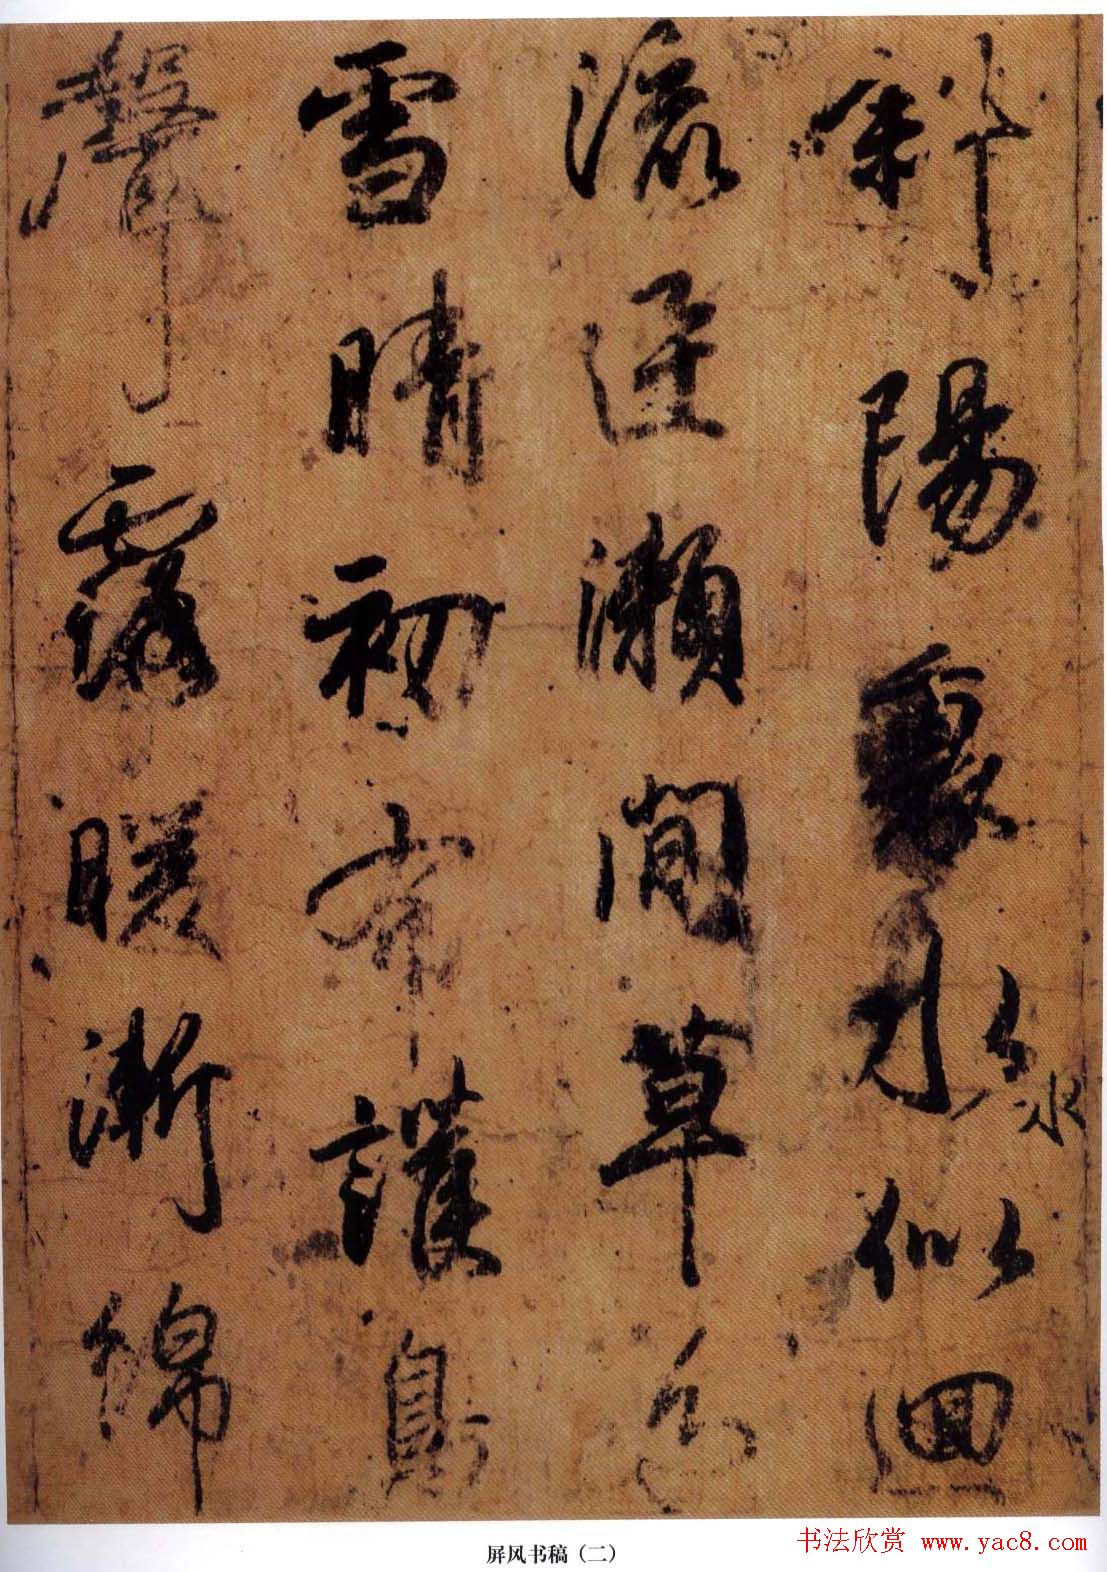 斜陽裏水似迴
水
流瀨間草色
雪晴初布護鳥
聲露暖漸綿
屏风书稿（二）
书法欣赏 www.yac8.com